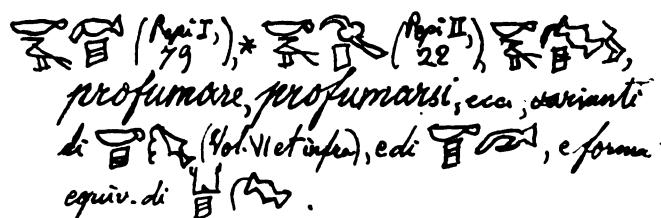 (Pepi I, 79), * (Pepi II, 22),
profumare, profumarsi, ecc., varianti
di (Vol. VI et infra), e di , e forma
equiv. di .